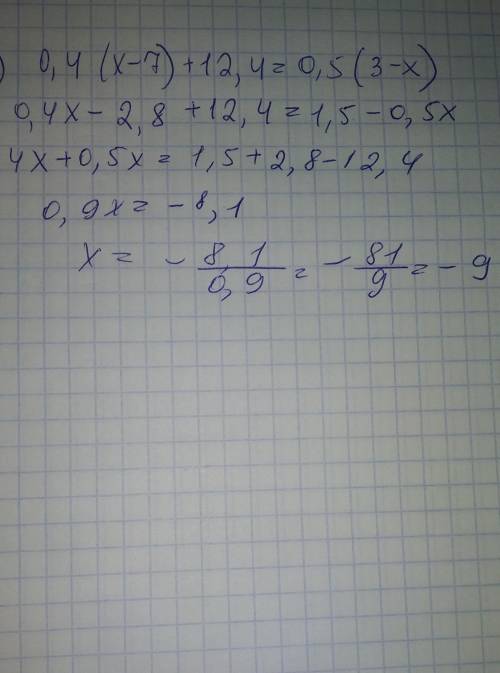 ) 0,4 (x-7)+12,4=0,5(3-x)
0,4x-2,8+12,4=1,5-0,5x
4x+0,5x=1,5+2,8-12,4
0,9x=-8,1
x= -8,1/0,9=-81/9=-9